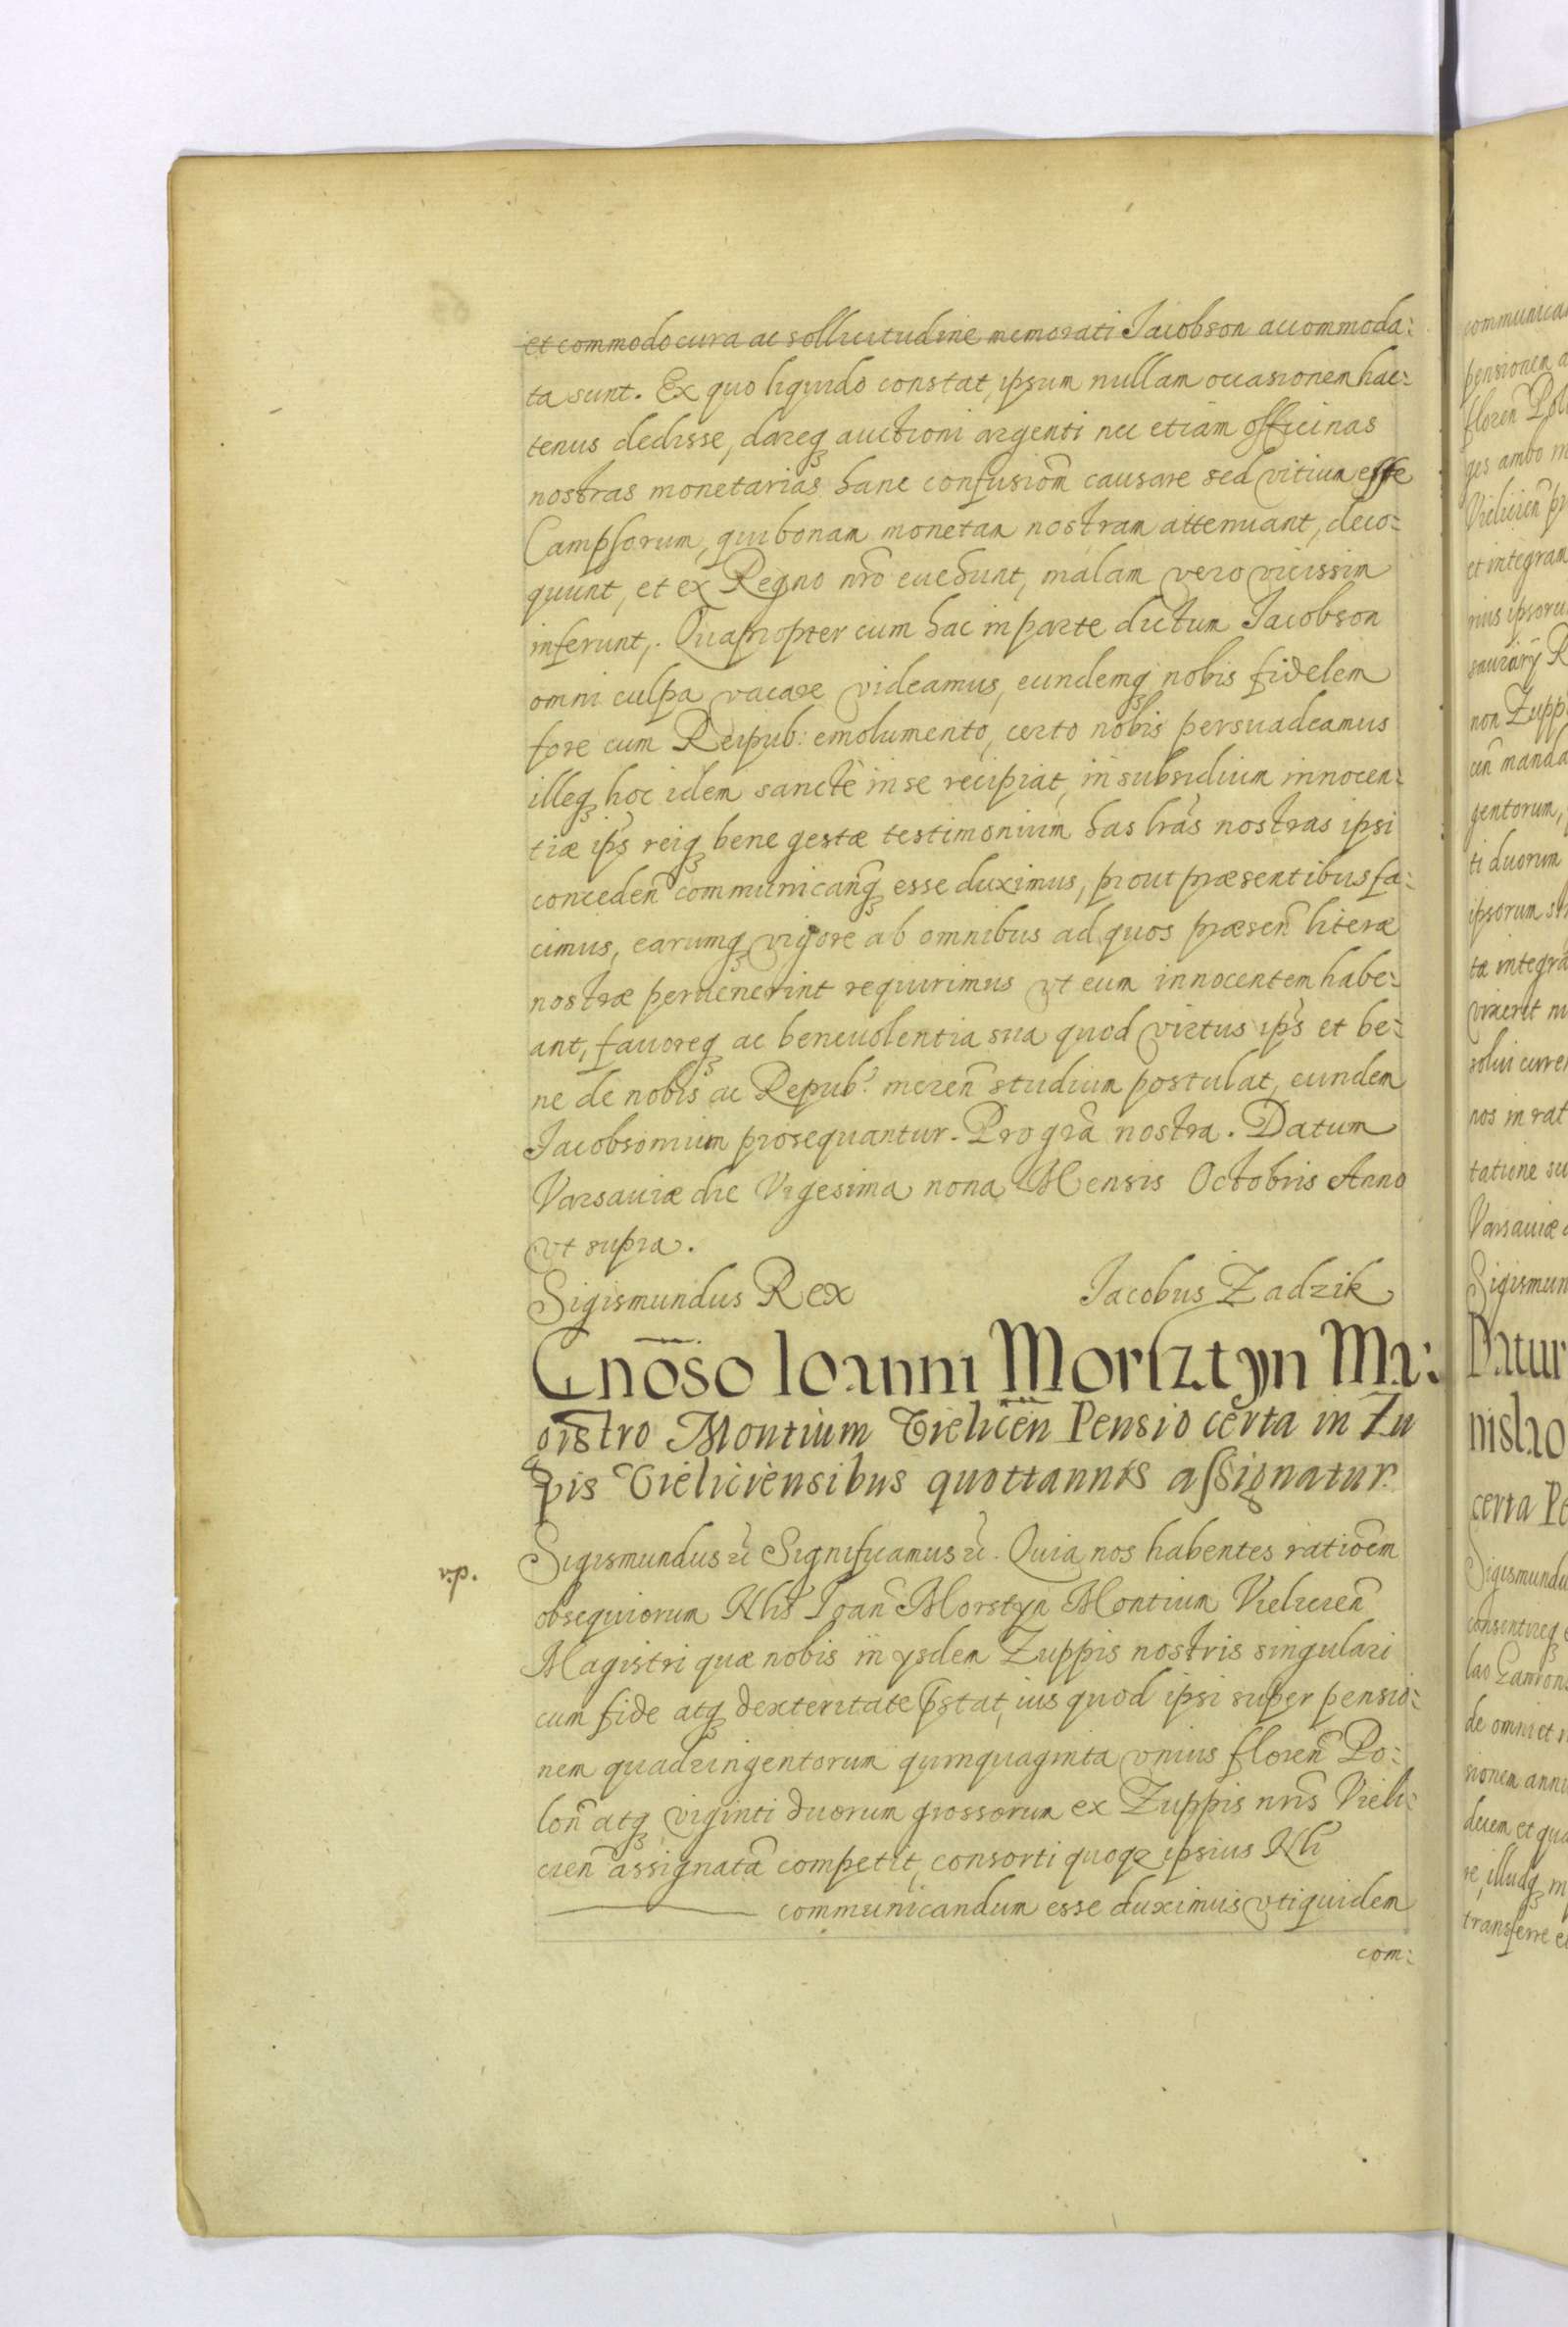 et commodo cura ac sollicitudine memorati Jacobson accommoda:
ta sunt. Ex quo liquido constat, ipsum nullam occasionem hac:
tenus dedisse, dareq₃ auctioni argenti nec etiam officinas
nostras monetarias hanc confusiōm causare sed vitium esse
Campsorum, qui bonam monetam nostram attenuant, deco:
quunt, et ex Regno nr̃o euehunt, malam vero vicissim
inferunt,. Quapropter cum hac in parte dictum Jacobson
omni culpa vacare videamus, eundemq₃ nobis fidelem
fore cum Reipub: emolumento, certo nobis persuadeamus
illeq₃ hoc idem sanctè in se recipiat, in subsidium innocen:
tiæ ips̃ reiq₃ bene gestæ testimonium has lr̃as nostras ipsi
conceden̄ communicanq̃₃ esse duximus, prout præsentibus fa:
cimus, earumq₃ vigore ab omnibus ad quos præsen̄ literæ
nostræ peruenerint requirimus vt eum innocentem habe:
ant, fauoreq₃ ac beneuolentia sua quod virtus ips̃ et be:
ne de nobis ac Repub: meren̄ studium postulat, eundem
Jacobsonium prosequantur. Pro gr̃a nostra. Datum
Varsauiæ die Vigesima nona Mensis Octobris Anno
vt supra.
Sigismundus Rex Jacobus Zadzik
Gnōso Ioanni Morsztyn Ma:
gistro Montium Vielicen̄ Pensio certa in Zu
pis Vieliciensibus quottannis assignatur.
v.p.
Sigismundus &c̃ Significamus &c̃. Quia nos habentes ratiōem
obsequiorum Nlis̃ Ioan̄ Morstyn Montium Vielicien̄
Magistri quæ nobis in ysdem Zuppis nostris singulari
cum fide atq₃ dexteritate p̃stat, ius quod ipsi super pensio:
nem quadringentorum quinquaginta vnius floren̄ Po:
lon̄ atq₃ viginti duorum grossorum ex Zuppis nr̃is Vieli:
cien̄ assignatā competit, consorti quoq₃ ipsius Nli
communicandum esse duximus vti quidem
com:
communica
pensionem a
floren̄ Pol
ges ambo m
Vielicien̄ pr
et integram
rius ipsoru
saurarij R
non Zupp
cen̄ manda
gentorum,
ti duorum
ipsorum
tæ integra
vixerit
solui curen
nos in rat
tatione su
Varsauiæ
Sigismun
Datur
nislao
certa Pe
Sigismundu
consentireq₃
lao
de omni et
sionem annu
decem et qua
re, illudq₃ m
transferre